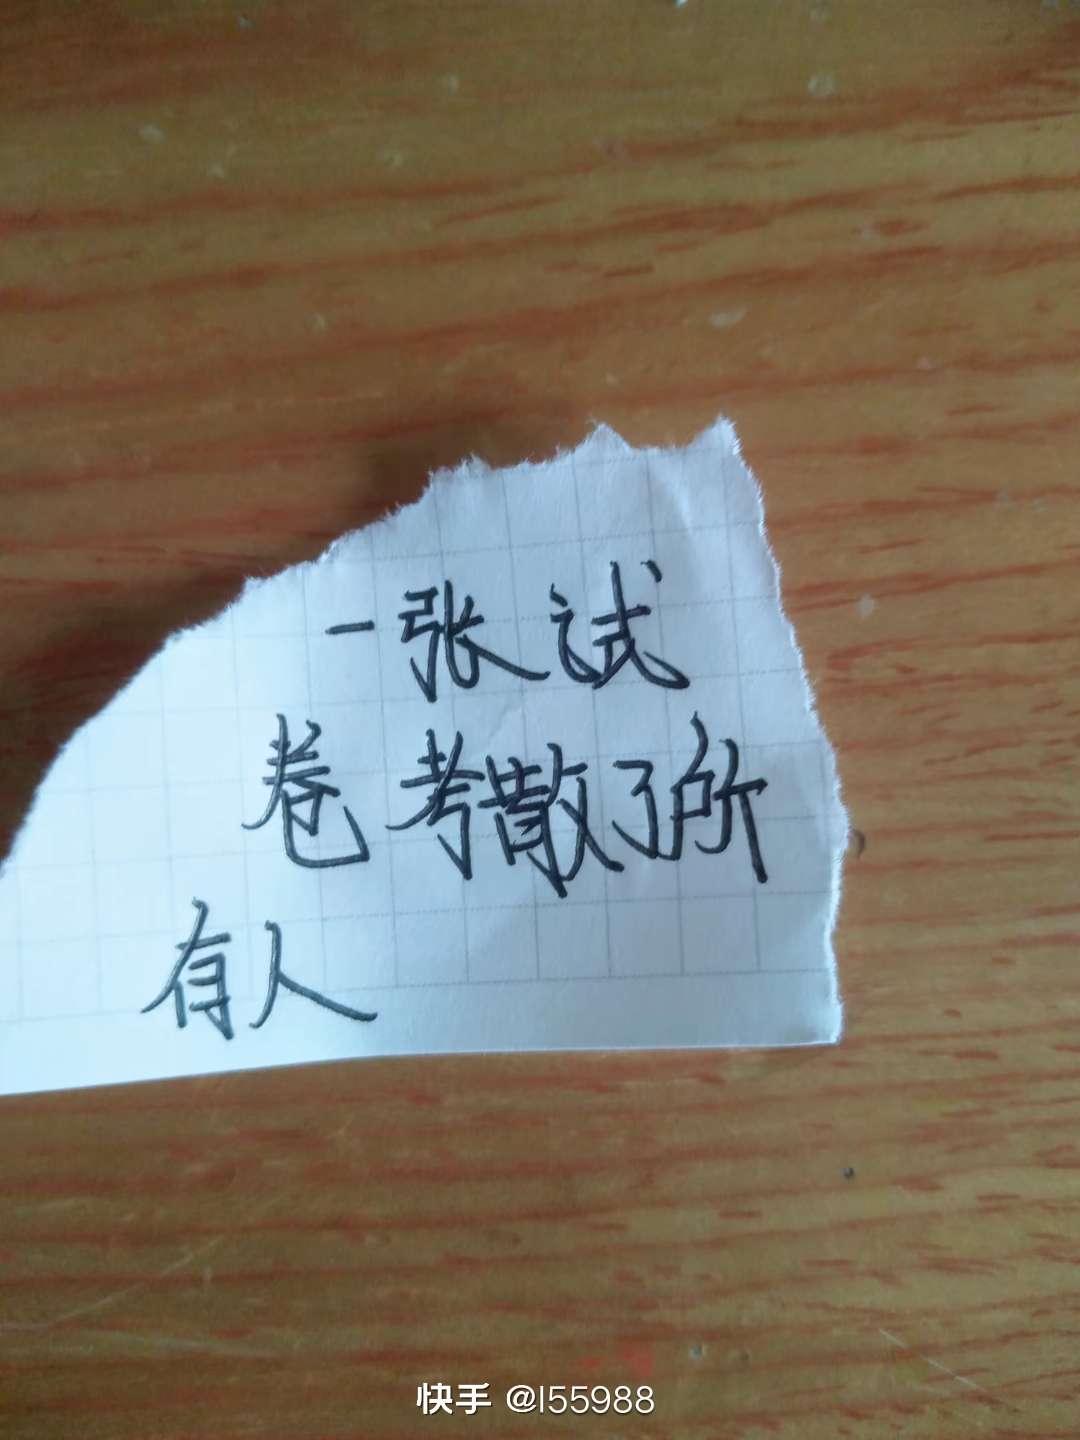 一张试
卷考散了所
有人
快手 @l55988